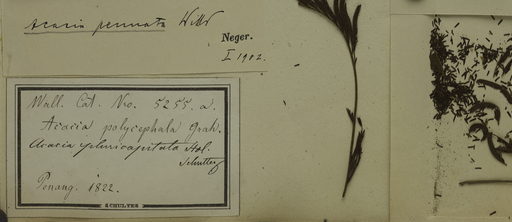 Acacia pennata Willd
Neger.
I 1902.
Wall. Cat. Nro. 5255. a.
Acacia polycephala Grah.
Acacia pluricapitata
Penang. 1822.
SCHULTES